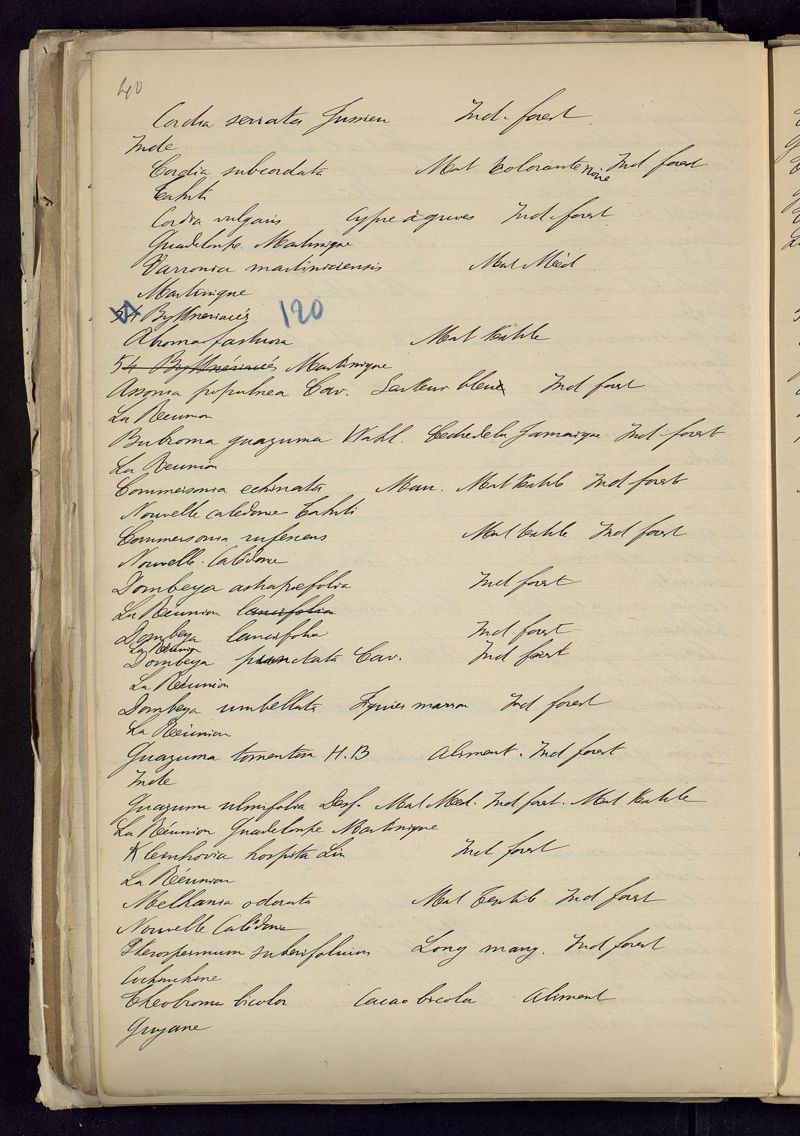 40
Cordia serrata Jussieu Ind. forest
Inde
Cordia subcordata Mat Colorante noire Ind forest
Tahiti
Cordia vulgaris Cypre à greves Ind. forest
Guadeloupe Martinique
Varronia martinicensis Mat Méd
Martinique
54 Byttneriacés 120
Abroma fastuosa Mat textile
54 Byttnériacés Martinique
Assonia populnea Cav. Senteur bleue Ind forest
La Réunion
Bubroma guazuma Wahl. Cedre de la Jamaique Ind forest
La Réunion
Commersonia echinata Mau. Mat textile Ind forest
Nouvelle Calédonie Tahiti
Commersonia rufescens Mat textile Ind forest
Nouvelle-Calédonie
Dombeya astrapiefolia Ind forest
La Réunion lancifolia
Dombeya lancifolia Ind forest
La Réunion
Dombeya punctata Cav. Ind forest
La Réunion
Dombeya umbellata Figuier marron Ind forest
La Réunion
Guazuma tomentosa H.B Aliment. Ind forest
Inde
Guazuma ulmifolia Desf. Mat Med. Ind forest. Mat textile
La Réunion Guadeloupe Martinique
Kleinhovia hospita Lin Ind forest
La Réunion
Melhania odorata Mat Textile Ind forest
Nouvelle Calédonie
Pterospermum suberifolium Long mang. Ind forest
Cochinchine
Theobroma bicolor Cacao bicolor Aliment
Guyane